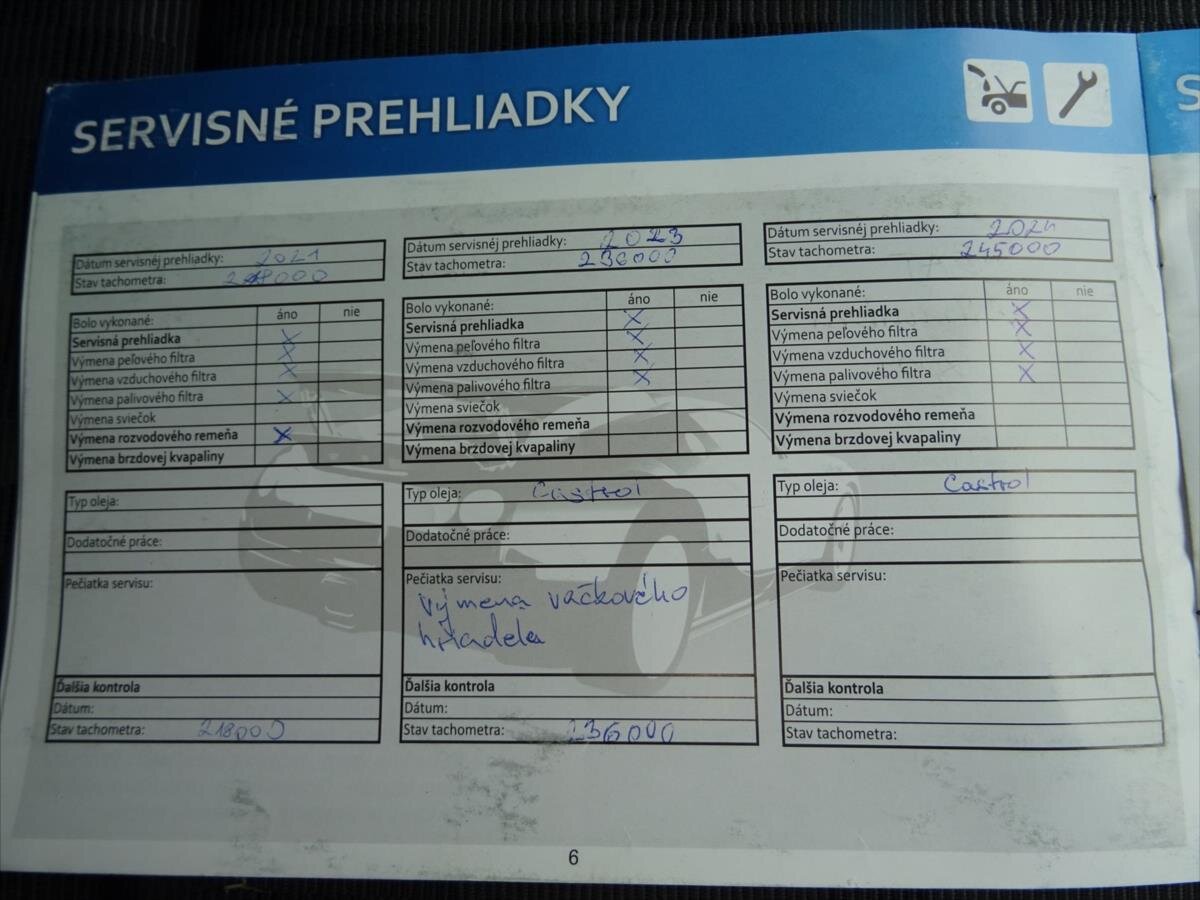 SERVISNÉ PREHLIADKY
S
Dátum servisnéj prehliadky: 2021
Stav tachometra:
Bolo vykonané: áno nie
Servisná prehliadka X
Výmena peľového filtra X
Výmena vzduchového filtra X
Výmena palivového filtra X
Výmena sviečok
Výmena rozvodového remeňa X
Výmena brzdovej kvapaliny
Typ oleja:
Dodatočné práce:
Pečiatka servisu:
Ďalšia kontrola
Dátum:
Stav tachometra: 218000
Dátum servisnéj prehliadky: 2023
Stav tachometra: 236000
Bolo vykonané: áno nie
Servisná prehliadka X
Výmena peľového filtra X
Výmena vzduchového filtra X
Výmena palivového filtra X
Výmena sviečok
Výmena rozvodového remeňa
Výmena brzdovej kvapaliny
Typ oleja: Castrol
Dodatočné práce:
Pečiatka servisu:
Výmena vačkového
hriadela
Ďalšia kontrola
Dátum:
Stav tachometra: 236000
Dátum servisnéj prehliadky: 2024
Stav tachometra: 245000
Bolo vykonané: áno nie
Servisná prehliadka X
Výmena peľového filtra X
Výmena vzduchového filtra X
Výmena palivového filtra X
Výmena sviečok
Výmena rozvodového remeňa
Výmena brzdovej kvapaliny
Typ oleja: Castrol
Dodatočné práce:
Pečiatka servisu:
Ďalšia kontrola
Dátum:
Stav tachometra:
6